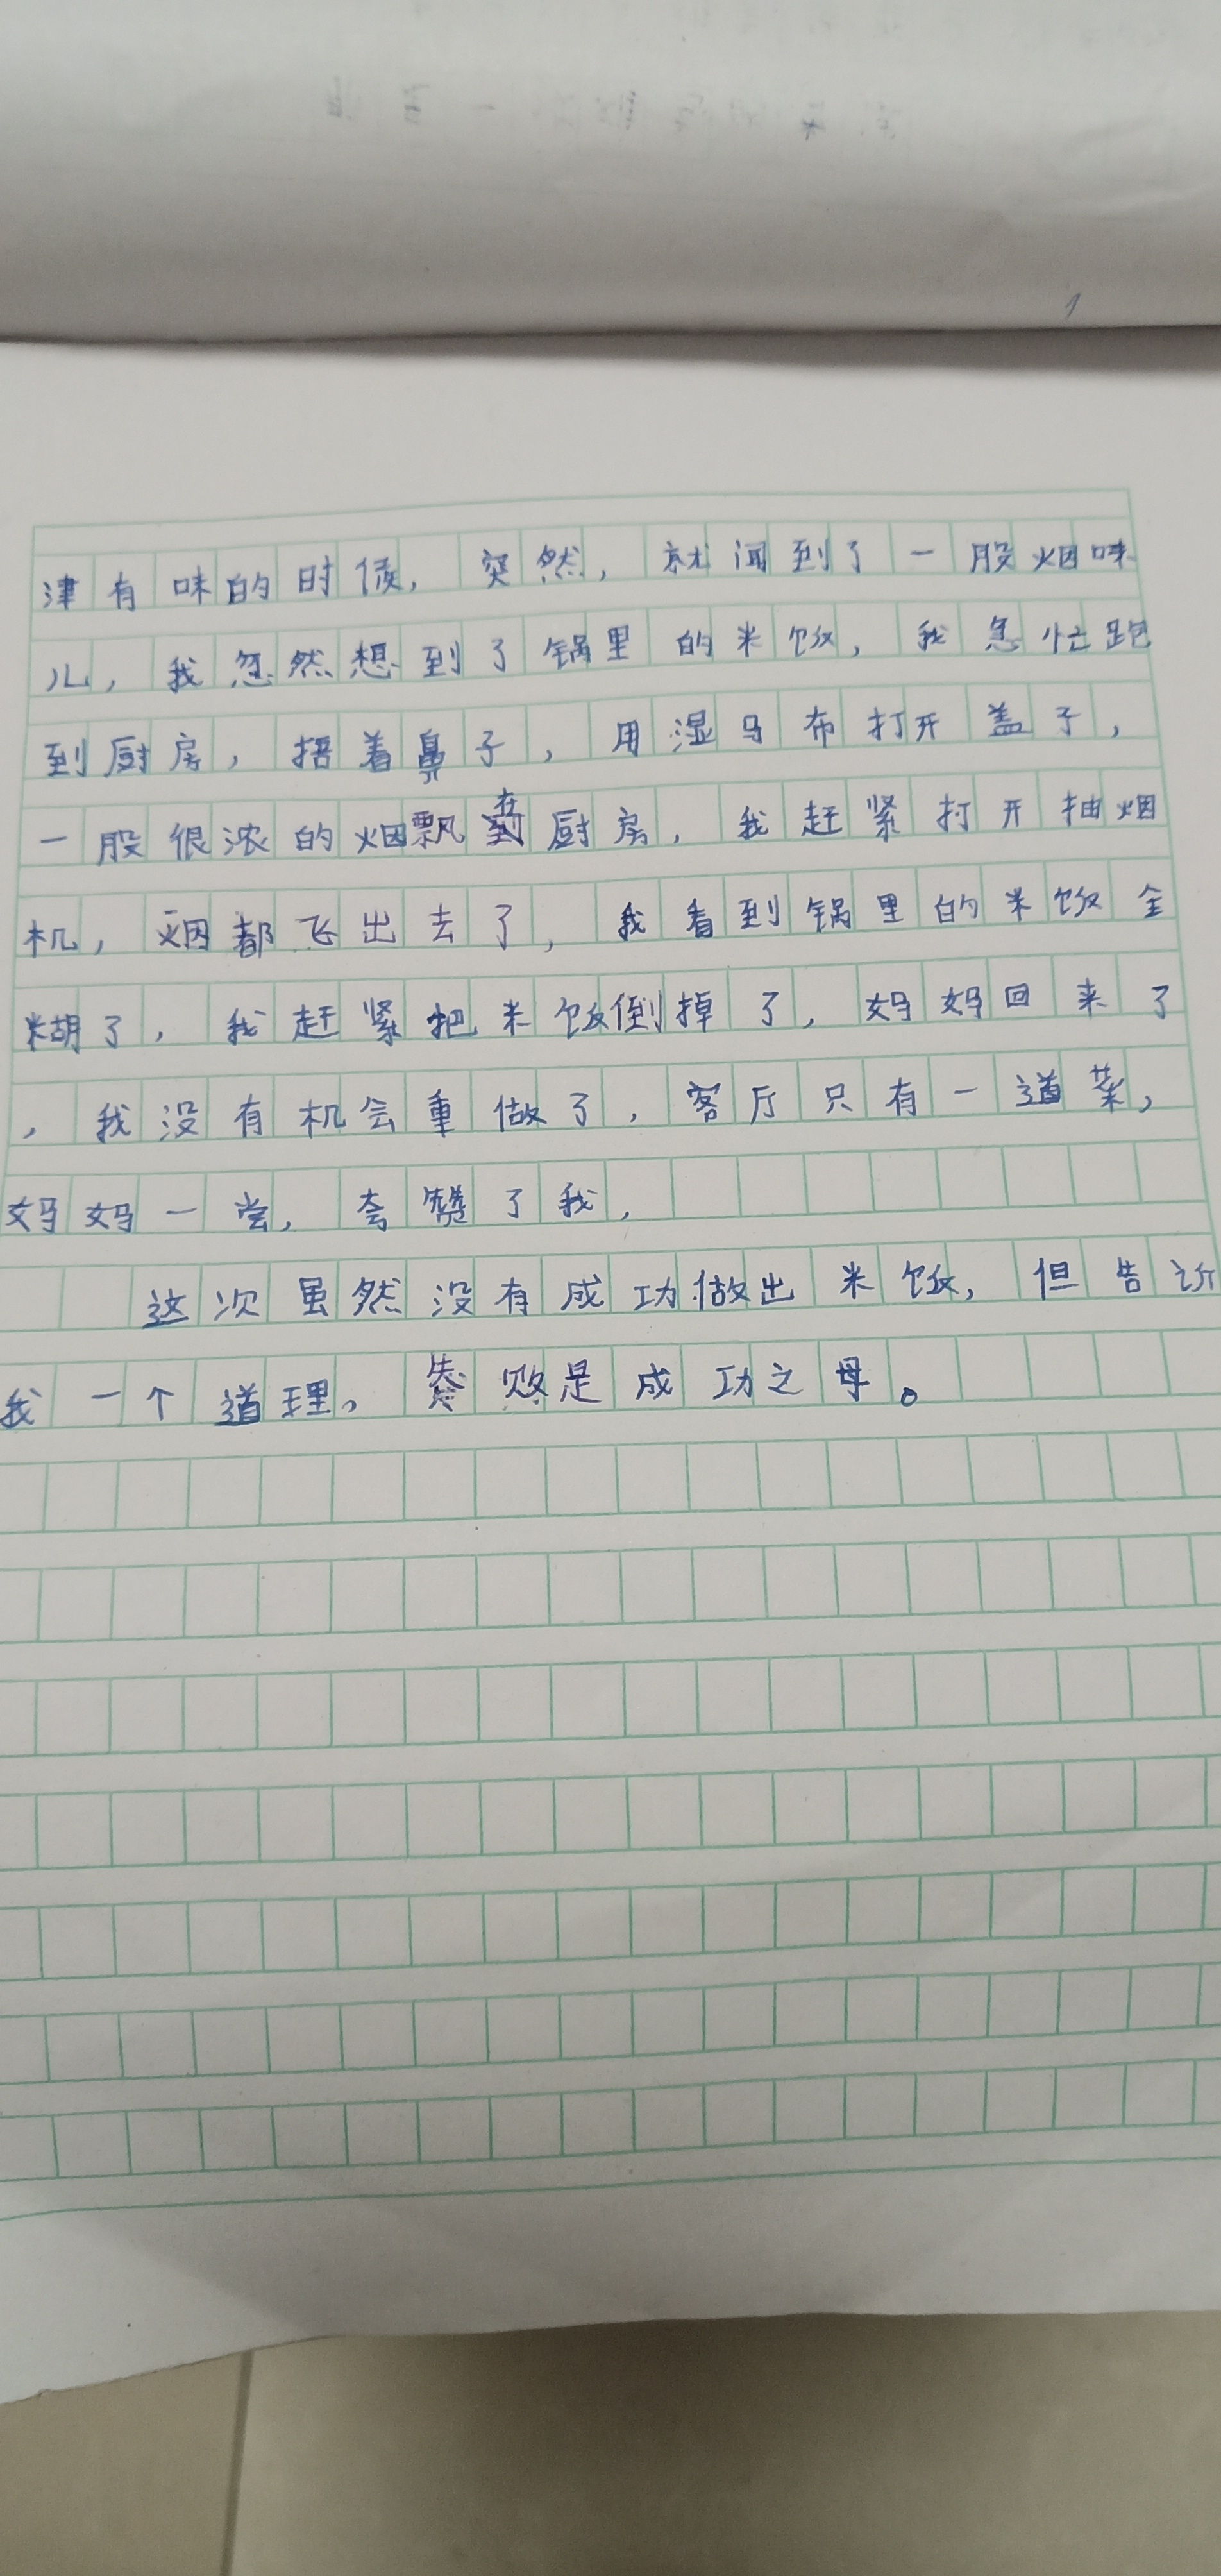 津有味的时候，突然，就闻到了一股烟味
儿，我忽然想到了锅里的米饭，我急忙跑
到厨房，捂着鼻子，用湿马布打开盖子，
一股很浓的烟飘在厨房，我赶紧打开抽烟
机，烟都飞出去了，我看到锅里的米饭全
糊了，我赶紧把米饭倒掉了，妈妈回来了
，我没有机会重做了，客厅只有一道菜，
妈妈一尝，夸赞了我，
这次虽然没有成功做出米饭，但告诉
我一个道理。失败是成功之母。